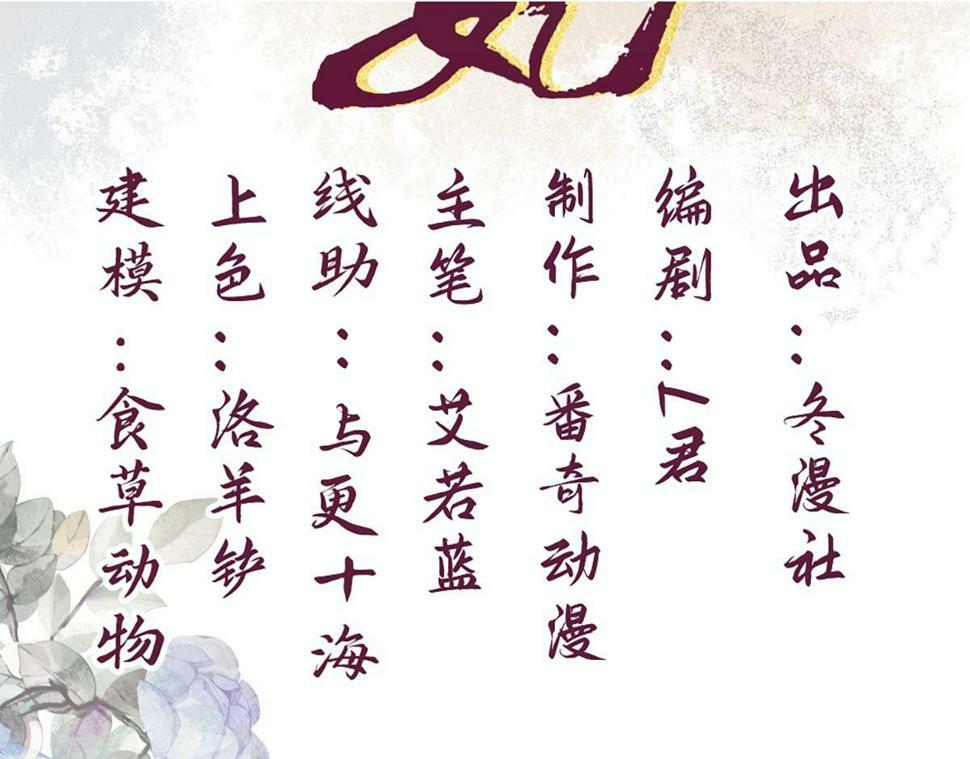 出品：冬漫社
编剧：七君
制作：番奇动漫
主笔：艾若蓝
线助：与更十海
上色：洛羊铲
建模：食草动物